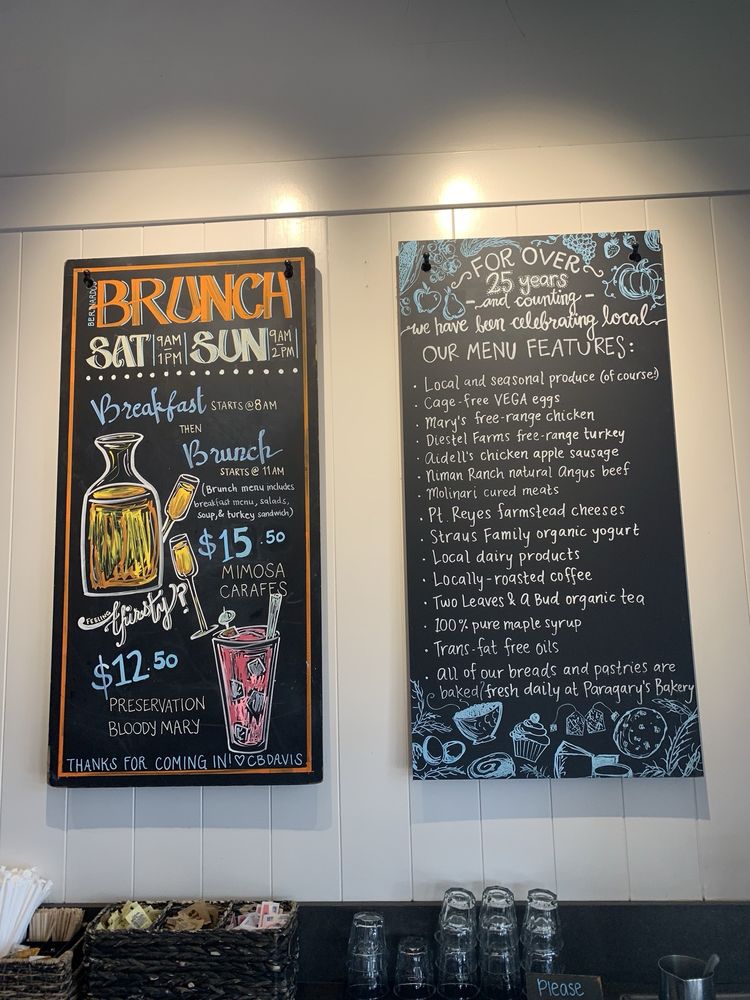 BERNARDO
BRUNCH
SAT 9AM - 1PM SUN 9AM - 2PM
Breakfast STARTS @ 8AM
THEN
Brunch
STARTS @ 11AM
(Brunch menu includes
breakfast menu, salads,
soup, & turkey sandwich)
$15.50
MIMOSA
CARAFES
FEELING thirsty?
$12.50
PRESERVATION
BLOODY MARY
THANKS FOR COMING IN! ♡ CBDAVIS
FOR OVER
25 years
- and counting -
we have been celebrating local
OUR MENU FEATURES:
• Local and seasonal produce (of course!)
• Cage-free VEGA eggs
• Mary's free-range chicken
• Diestel Farms free-range turkey
• Aidell's chicken apple sausage
• Niman Ranch natural Angus beef
• Molinari cured meats
• Pt. Reyes farmstead cheeses
• Straus Family organic yogurt
• Local dairy products
• Locally-roasted coffee
• Two Leaves & A Bud organic tea
• 100% pure maple syrup
• Trans-fat free oils
• All of our breads and pastries are
baked fresh daily at Paragary's Bakery
Please